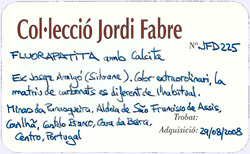 Col·lecció Jordi Fabre
FLUORAPATITA amb Calcita Nº JFD225
Ex Jorge Araujo (Silvane). Color extraordinari, la
matriu de carbonats es diferent de l'habitual.
Minas da Panasqueira, Aldeia de São Francisco de Assis,
Covilhã, Castelo Branco, Cova da Beira,
Centro, Portugal
Trobat:
Adquisició: 29/08/2008